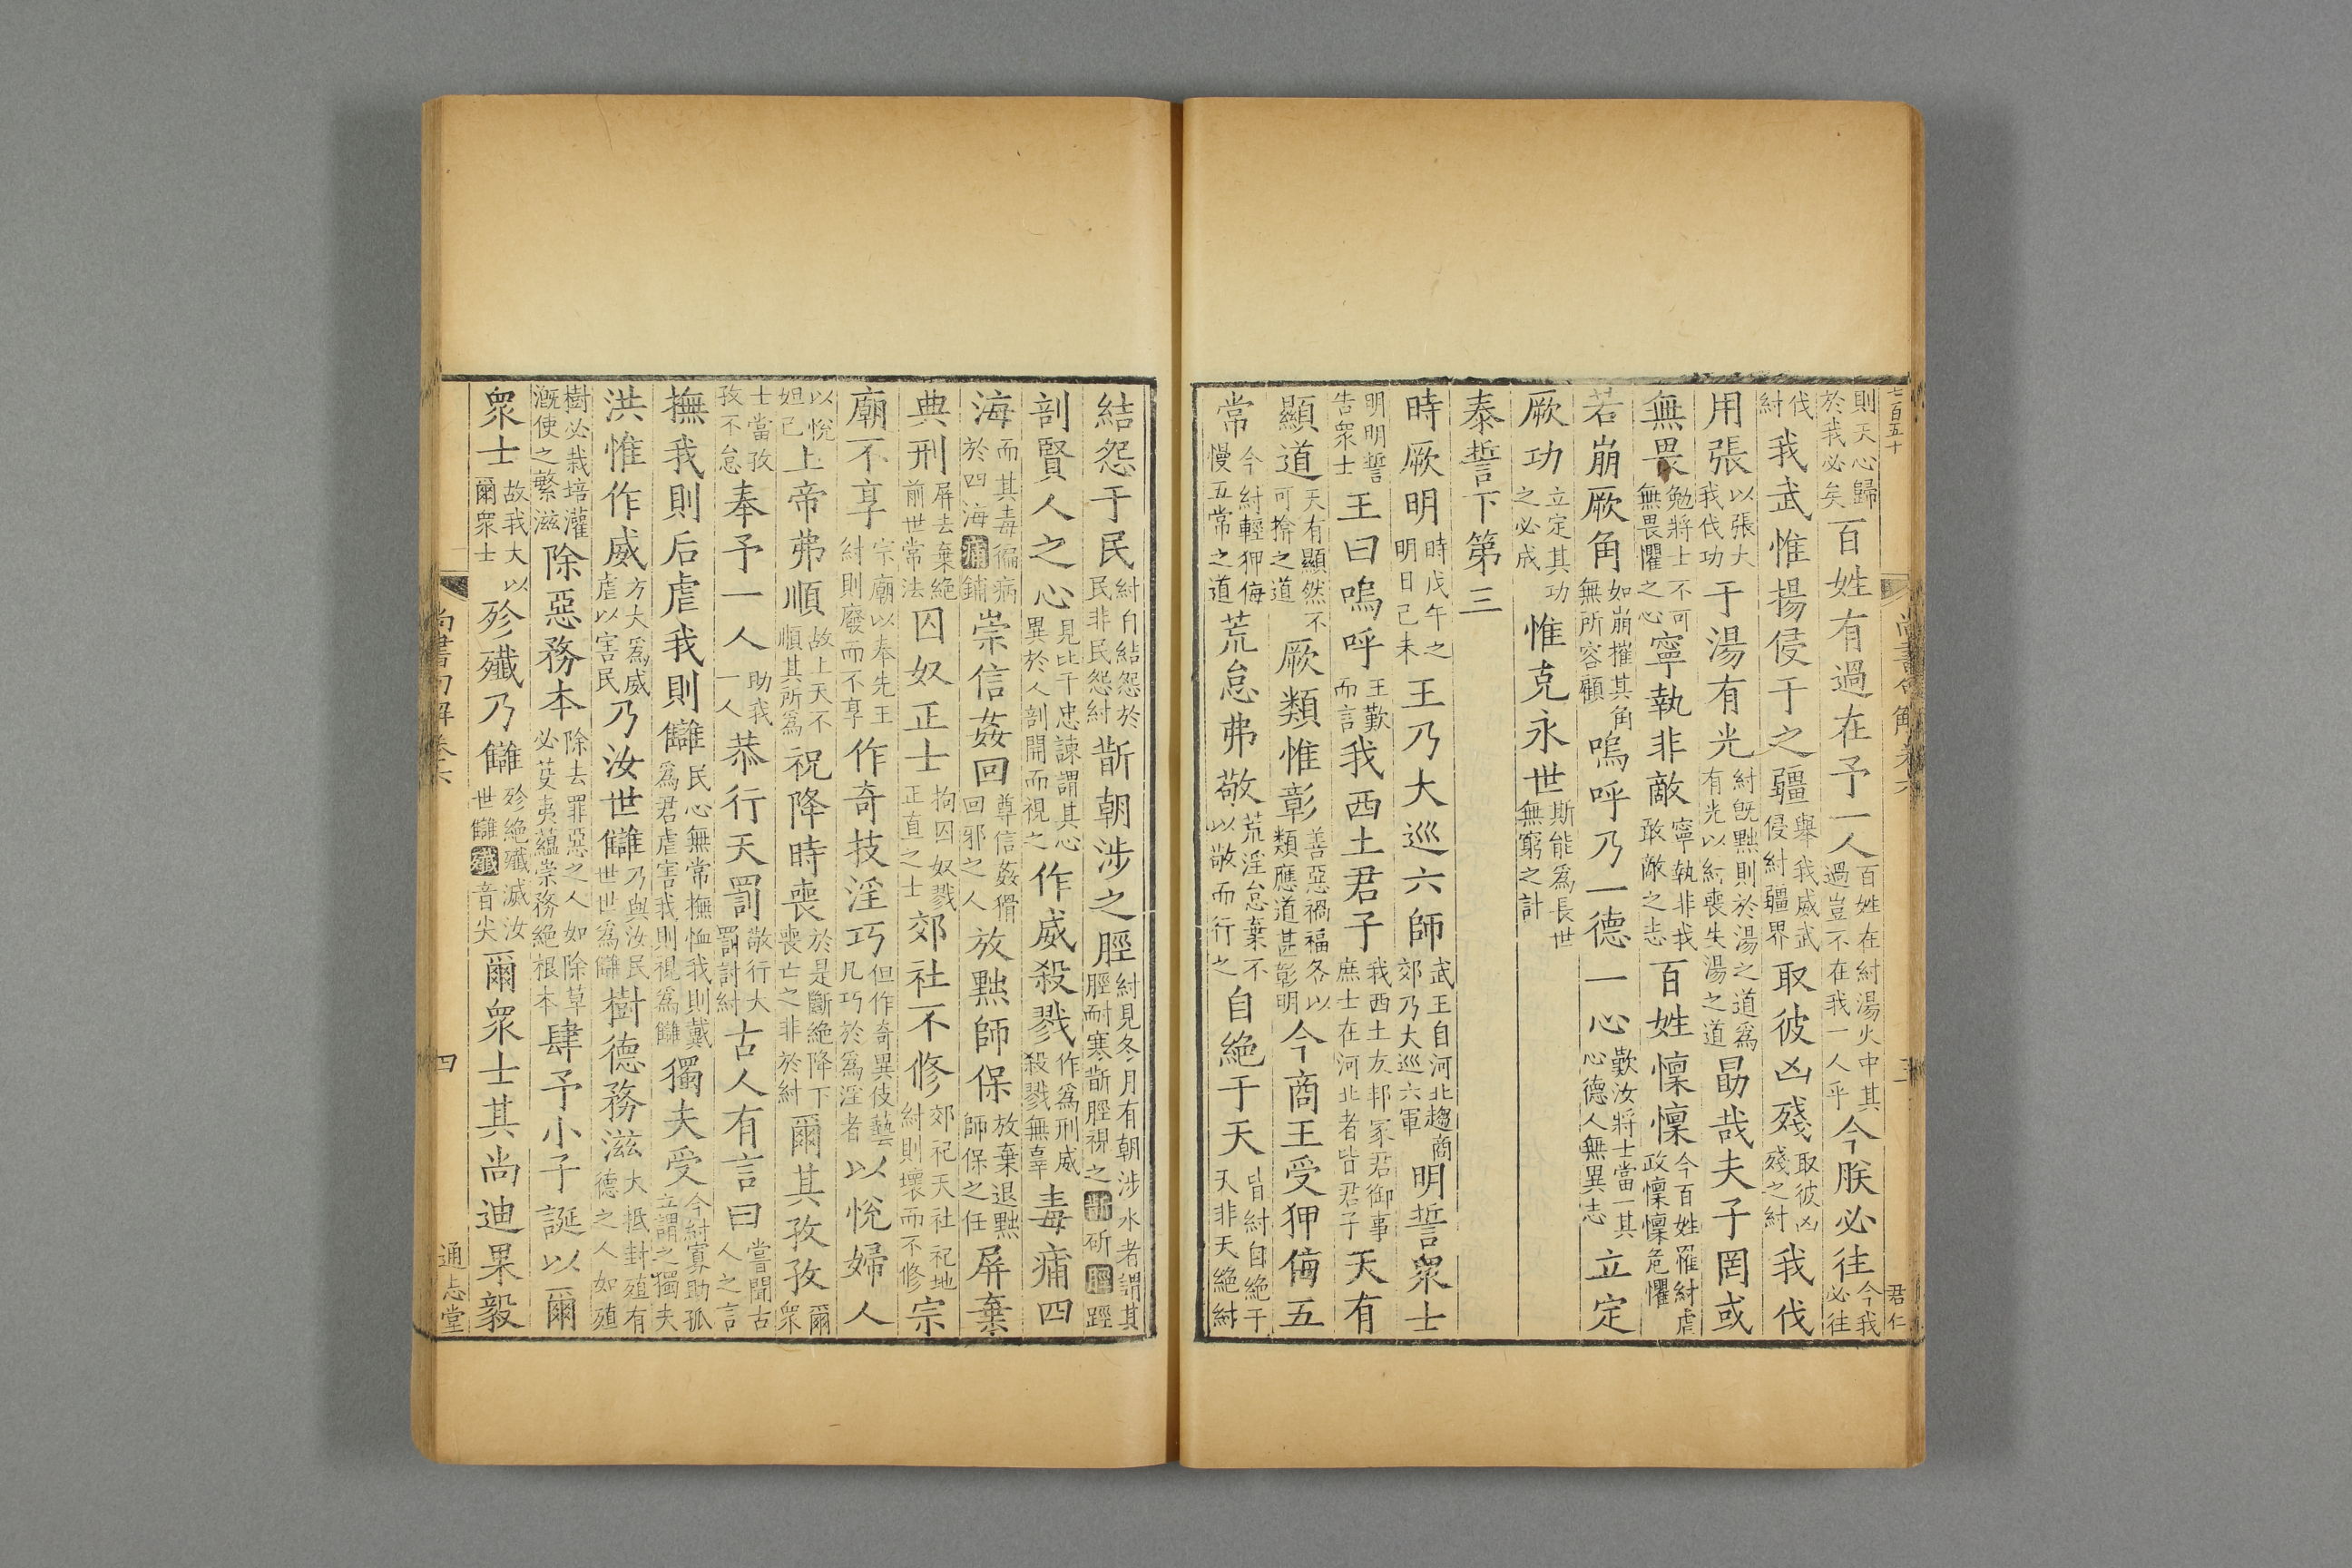 七百五十　尚書句解卷六　三　君仁
則天心歸於我必矣百姓有過在予一人百姓在紂湯火中其過豈不在我一人乎今朕必往今我必往
伐紂我武惟揚侵于之疆舉我威武侵紂疆界取彼凶殘取彼凶殘之紂我伐
用張以張大我伐功于湯有光紂旣黜則於湯之道爲有光以紂喪失湯之道勗哉夫子罔或
無畏勉將士不可無畏懼之心寧執非敵寧執非我敢敵之志百姓懍懍今百姓罹紂虐政懍懍危懼
若崩厥角如崩摧其角無所容顧嗚呼乃一德一心歎汝將士當一其心德人無異志立定
厥功立定其功之必成惟克永世斯能爲長世無窮之計
泰誓下第三
時厥明時戊午之明日己未王乃大巡六師武王自河北趨商郊乃大巡六軍明誓衆士
明明誓告衆士王曰嗚呼王歎而言我西土君子我西土友邦冢君御事庶士在河北者皆君子天有
顯道天有顯然不可揜之道厥類惟彰善惡禍福各以類應道甚彰明今商王受狎侮五
常今紂輕狎侮慢五常之道荒怠弗敬荒淫怠棄不以敬而行之自絶于天皆紂自絶于天非天絶紂
結怨于民紂自結怨於民非民怨紂斮朝涉之脛紂見冬月有朝涉水者謂其脛耐寒斮脛視之斮斫脛踁
剖賢人之心見比干忠諫謂其心異於人剖開而視之作威殺戮作爲刑威殺戮無辜毒痡四
海而其毒徧病於四海痡鋪崇信姦回尊信姦猾回邪之人放黜師保放棄退黜師保之任屏棄
典刑屏去棄絶前世常法囚奴正士拘囚奴戮正直之士郊社不修郊祀天社祀地紂則壞而不修宗
廟不享宗廟以奉先王紂則廢而不享作奇技淫巧但作奇異伎藝凡巧於爲淫者以悅婦人
以悅妲己上帝弗順故上天不順其所爲祝降時喪於是斷絶降下喪亡之非於紂爾其孜孜爾衆
士當孜孜不怠奉予一人助我一人恭行天罰敬行大罰討紂古人有言曰嘗聞古人之言
撫我則后虐我則讎民心無常撫恤我則戴爲君虐害我則視爲讎獨夫受今紂寡助孤立謂之獨夫
洪惟作威方大爲威虐以害民乃汝世讎乃與汝民世世爲讎樹德務滋大抵封殖有德之人如殖
樹必栽培灌漑使之繁滋除惡務本除去罪惡之人如除草必芟夷蘊崇務絶根本肆予小子誕以爾
衆士故我大以爾衆士殄殲乃讎殄絶殲滅汝世讎殲音尖爾衆士其尚迪果毅
尚書句解卷六　四　通志堂